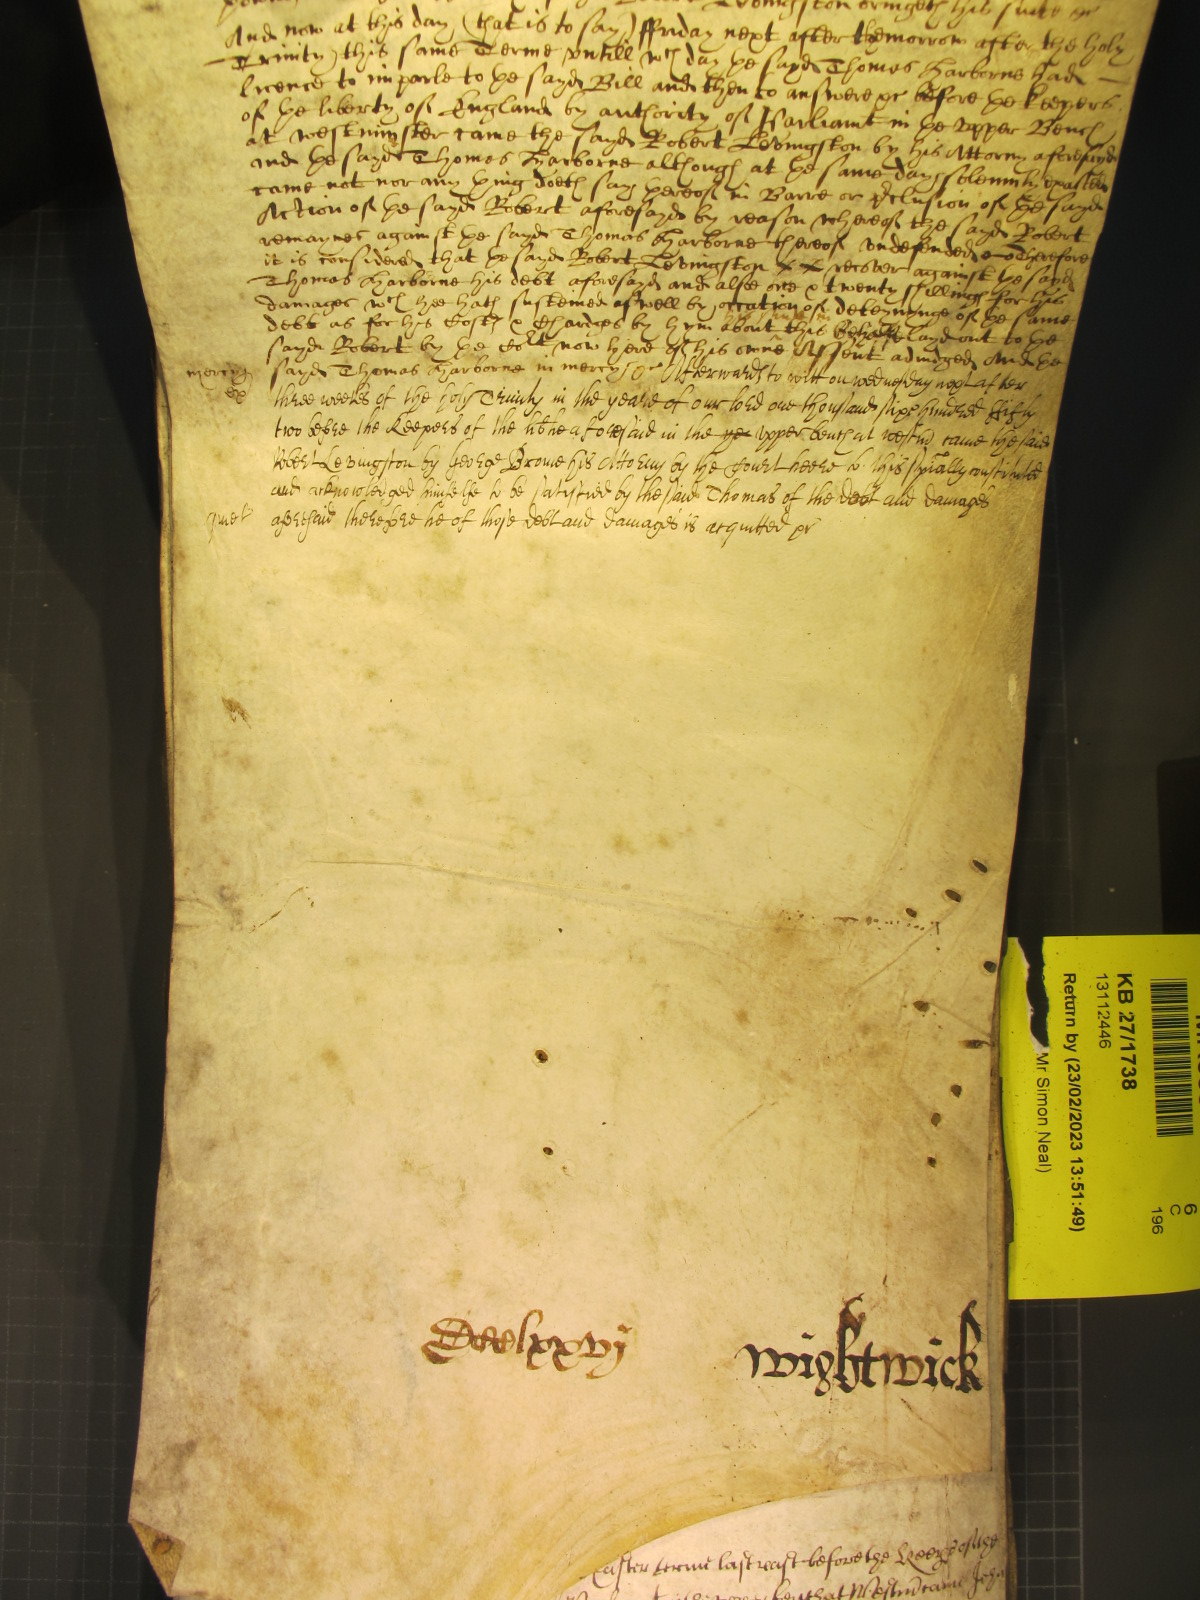 Levingston bringeth his suite &c
And now at this day (that is to say) ffriday next after the morrow after the holy
Trinity) this same Terme untill wch day ye sayd Thomas Harborne had
licence to imparle to ye sayd Bill and then to answere &c before ye keepers
of ye liberty of England by authority of Parliamt in ye upper Bench
at westminster came the sayd Robert Levingston by his Attorny aforesayd
and ye sayd Thomas Harborne although at ye same day solemnly
came not nor any thing doeth say thereof in Barre or pclusion of ye sayd
Action of ye sayd Robert aforesayd by reason whereof the sayd Robert
remaynes against ye sayd Thomas Harborne thereof undefended Therefore
it is considered that ye sayd Robert Levingston recover against ye sayd
Thomas Harborne his debt aforesayd and alsoe one & twenty shillings for his
damages wch hee hath susteined aswell by occation of deteyninge of ye same
debt as for his Costs & Chardges by hym about this behalfe layd out to ye
sayd Robert by ye Cort now here of his owne Assent adiudged And ye
mercy sayd Thomas Harborne in mercy &c Afterwards to witt on wednesday next after
three weeks of the holy Trinity in the yeare of our lord one thousand sixe hundred fifty
two before the Keepers of the libtie aforesaid in the ye upper bench at westm came the said
Robert Levingston by George Browe his Attorny by the Court heere to this specially constituted
and acknowledged himselfe to be satisfied by the said Thomas of the debt and damages
aforesaid therefore he of those debt and damages is acquitted &c
wightwick
KB 27/1738
13112446
Return by (23/02/2023 13:51:49)
Mr Simon Neal)
6
C
196
Easter terme last past before the Keeps of the